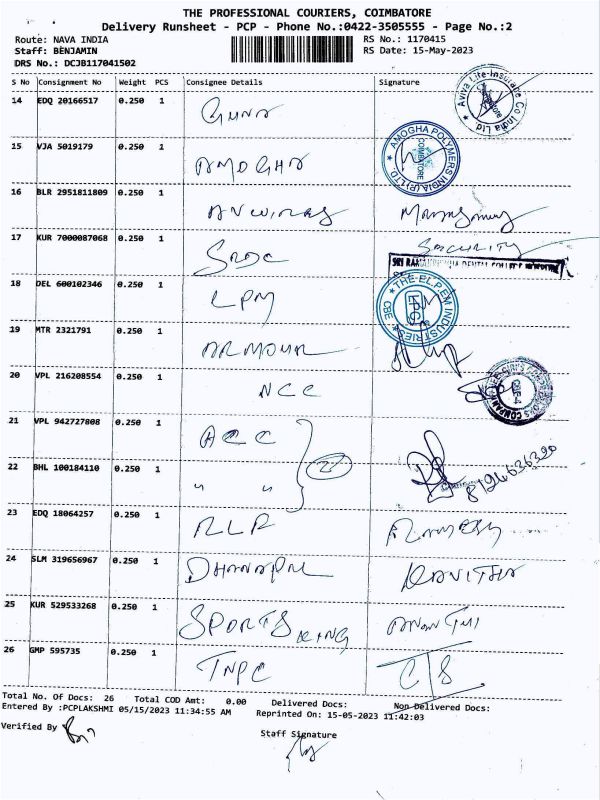 THE PROFESSIONAL COURIERS, COIMBATORE
Delivery Runsheet - PCP - Phone No.:0422-3505555 - Page No.:2
Route: NAVA INDIA RS No.: 1170415
Staff: BENJAMIN RS Date: 15-May-2023
DRS No.: DCJB117041502
S No Consignment No Weight PCS Consignee Details Signature
Aviva Life Insurance Co India Ltd
14 EDQ 20166517 0.250 1 GUNA
AMOGHA POLYMERS INDIA (P) LTD. COIMBATORE
15 VJA 5019179 0.250 1 AMOGHA
16 BLR 2951811809 0.250 1
17 KUR 7000087068 0.250 1 SRDC SECURITY
DENTAL COLLEGE
18 DEL 600102346 0.250 1 LPM
THE ELPEM INDUSTRIES CBE
19 MTR 2321791 0.250 1 ARMOUR
20 VPL 216208554 0.250 1 NCC
21 VPL 942727808 0.250 1 ACC
22 BHL 100184110 0.250 1 " " 2 8124636390
23 EDQ 18064257 0.250 1 RLR RAMESH
24 SLM 319656967 0.250 1 DHANAPAL KAVITHA
25 KUR 529533268 0.250 1 SPORTS KING
26 GMP 595735 0.250 1 TNPC C/S
Total No. Of Docs: 26 Total COD Amt: 0.00 Delivered Docs: Non Delivered Docs:
Entered By :PCPLAKSHMI 05/15/2023 11:34:55 AM Reprinted On: 15-05-2023 11:42:03
Verified By
Staff Signature